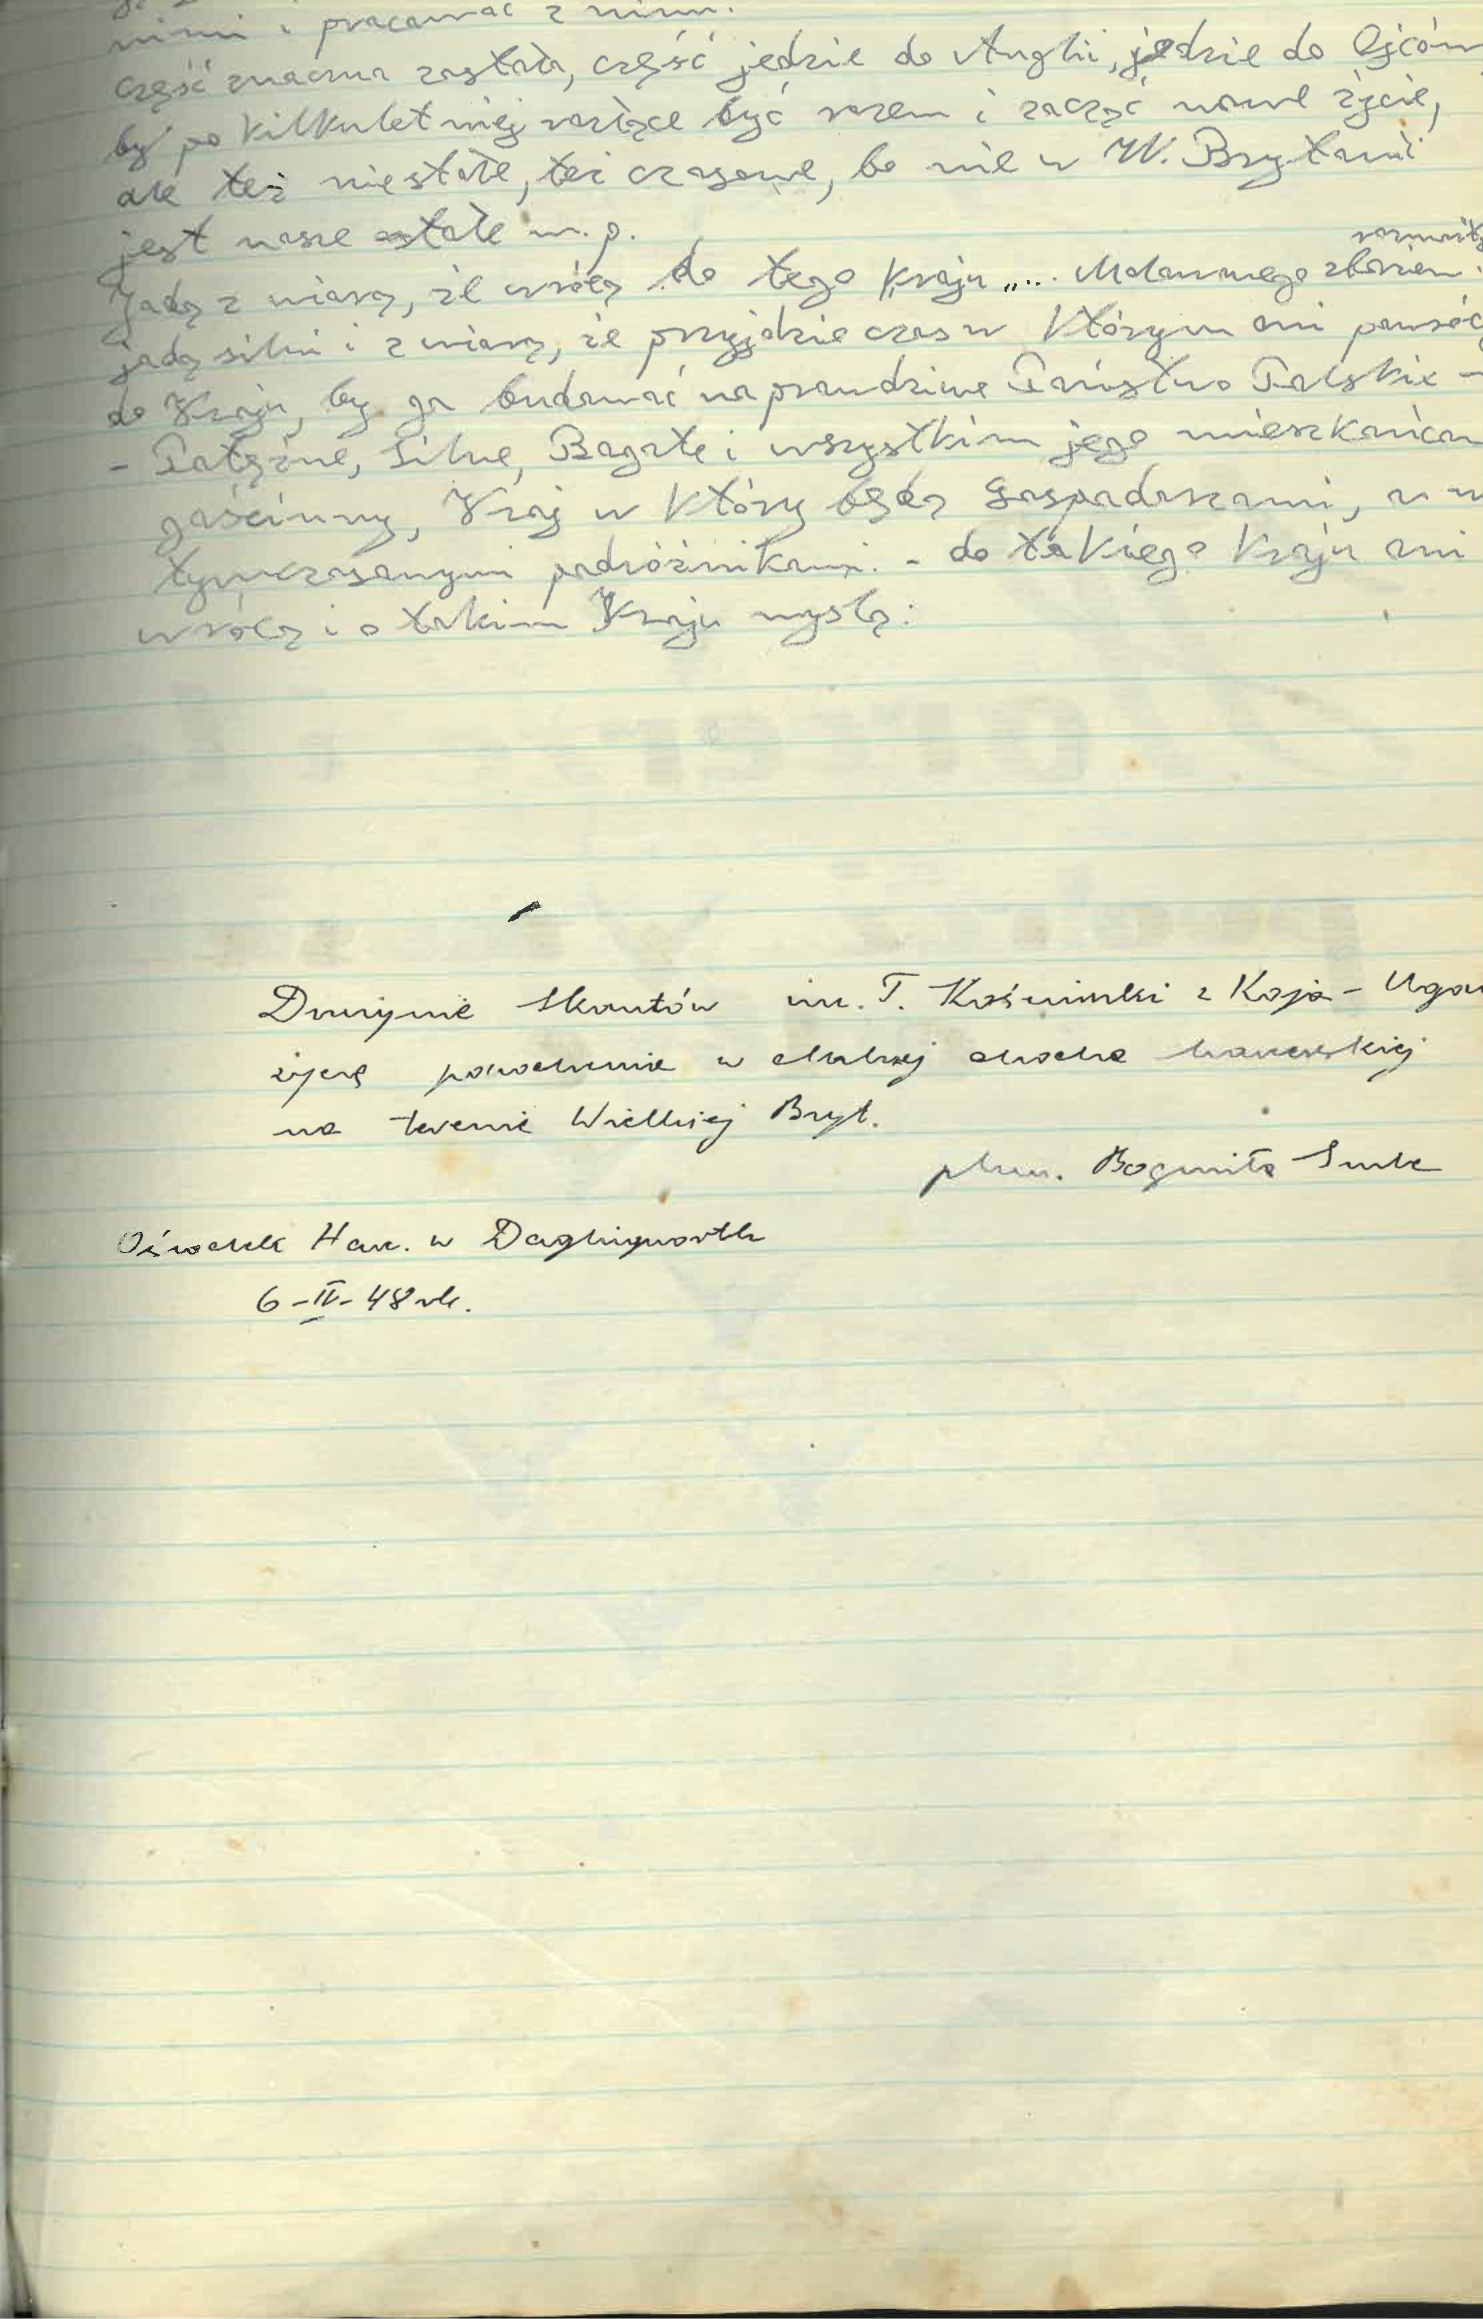 nimi i pracować z nimi.
część znaczna została, część jedzie do Anglii, jedzie do Ojców
by po kilkuletniej rozłące być razem i zacząć nowe życie,
ale też niestałe, też czasowe, bo nie w W. Brytanii
jest nasze stałe m. p.
rozmait
Jadą z wiarą, że wrócą do tego kraju „... Malowanego zbożem
jadą silni i z wiarą, że przyjdzie czas w którym oni powrócą
do Kraju, by go budować na prawdziwe Państwo Polskie -
- Potężne, Silne, Bogate i wszystkim jego mieszkańcom
gościnny, Kraj w który będą Gospodarzami, a n
tymczasowymi podróżnikami. - do takiego Kraju oni
wrócą i o takim Kraju myślą:
Drużynie Skautów im. T. Kościuszki z Koja - Ugan
życzę powodzenia w dalszej harcerskiej
na terenie Wielkiej Bryt.
phm. Bogumiła
Ośrodek Har. w Daglingworth
6-II-48 rk.